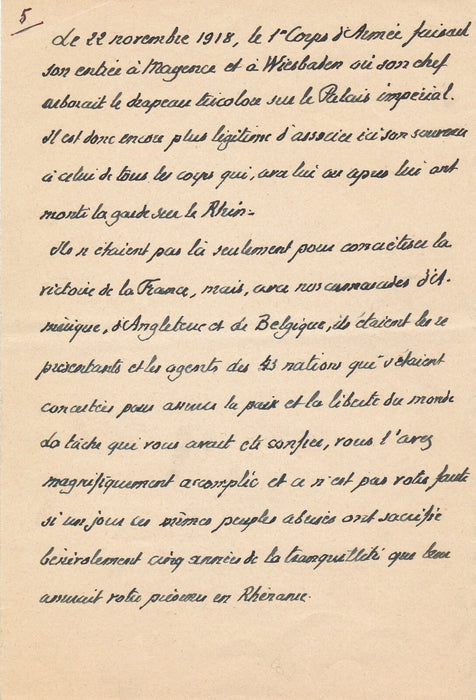 5
Le 22 novembre 1918, le 1er Corps d'Armée faisait
son entrée à Mayence et à Wiesbaden où son chef
arborait le drapeau tricolore sur le Palais impérial.
Il est donc encore plus légitime d'associer ici son souvenir
à celui de tous les corps qui, avec lui ou après lui ont
monté la garde sur le Rhin.
Ils n'étaient pas là seulement pour concrétiser la
victoire de la France, mais, avec nos camarades d'A-
mérique, d'Angleterre et de Belgique, ils étaient les re
présentants et les agents des 43 nations qui s'étaient
concertées pour assurer la paix et la liberté du monde
La tâche qui vous avait été confiée, vous l'avez
magnifiquement accomplie et ce n'est pas votre faute
si un jour ces mêmes peuples abusés ont sacrifié
bénévolement cinq années de la tranquillité que leur
assurait votre présence en Rhénanie.